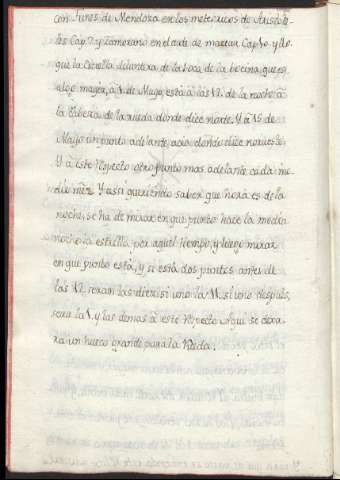 con Funes de Mendoza en los meteruros de Aristote-
les Cap. 7 y Zamorano en el arte de marear Cap. 40 y
que la Estrella delantera de la boca de la bocina, que es
algo mayor, a 1. de Mayo, está a las 12. de la noche à
la Cabeza de la rueda donde dice norte. Y à 15 de
Mayo un punto adelante, acia donde dice norueste.
Y à este respecto otro punto mas adelante cada me-
dio mes. Y assi queriendo saber que hora es de la
noche, se ha de mirar en que punto hace la media
noche la estrella por aquel tiempo, y luego mirar
en que punto está, y si está dos puntos antes de
las 12. seran las diez: si uno la 11. si uno despues,
sera la 1. y las demas à este respecto. Aqui se dexa-
ra un hueco grande para la Rueda.